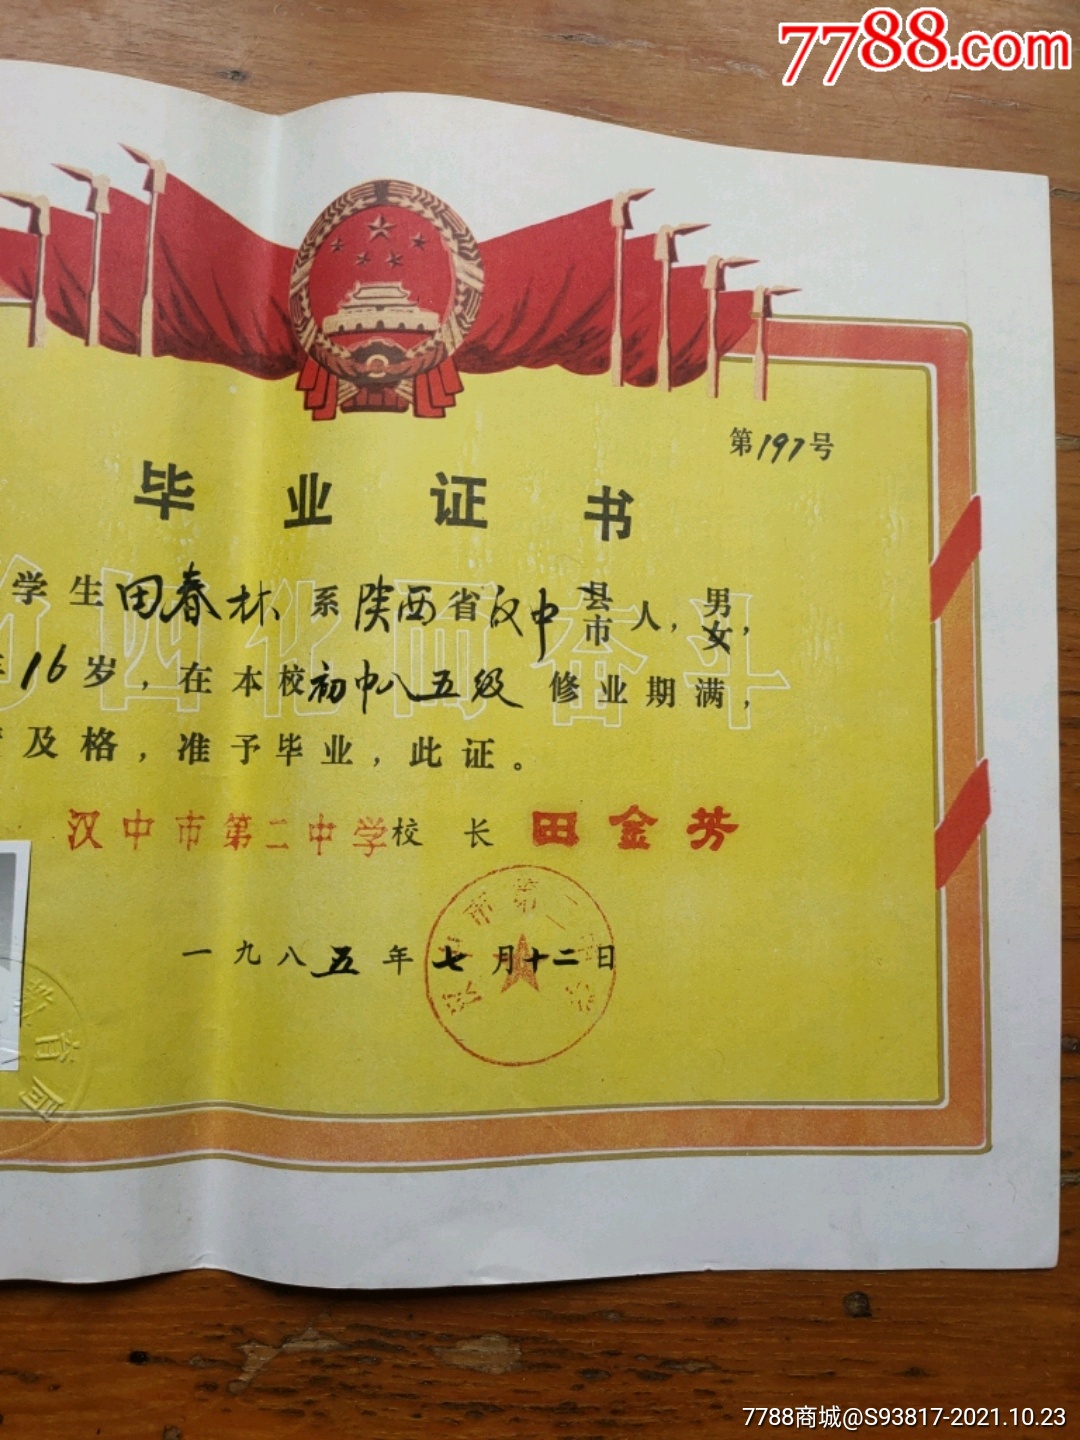 7788.com
第197号
毕业证书
学生田春林系陕西省汉中县市人，男女，
16岁，在本校初中八五级修业期满，
及格，准予毕业，此证。
汉中市第二中学校长 田金芳
一九八五年七月十二日
教育局
为四化而奋斗
7788商城@S93817-2021.10.23